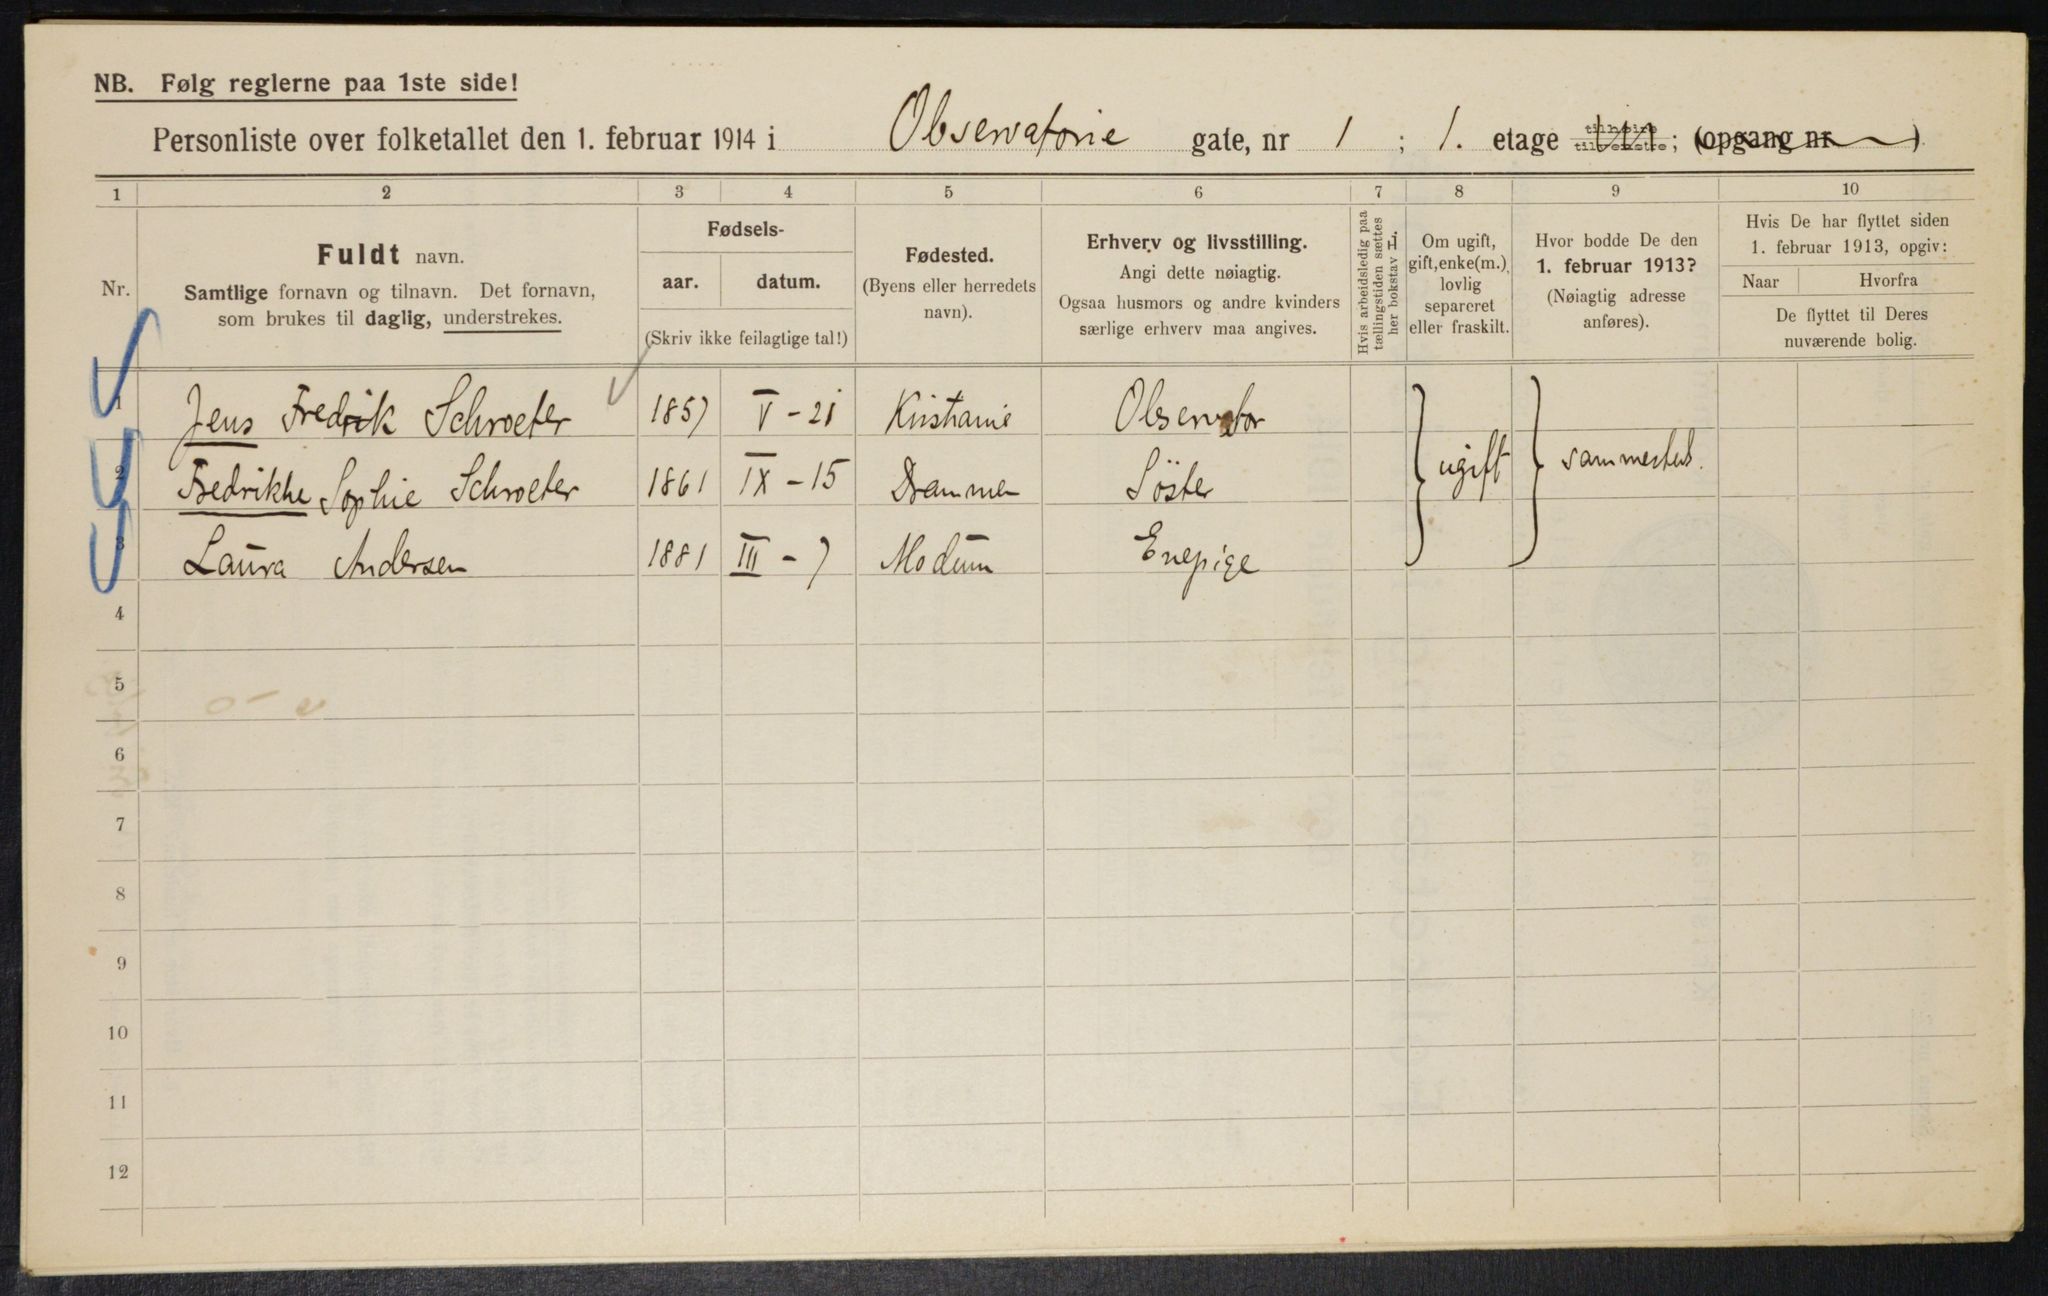 NB. Følg reglerne paa 1ste side!
Personliste over folketallet den 1. februar 1914 i Observatorie gate, nr 1 ; 1. etage tilhøire tilvenstre ; (opgang nr )
1 2 3 4 5 6 7 8 9 10
Nr.
Fuldt navn.
Samtlige fornavn og tilnavn. Det fornavn,
som brukes til daglig, understrekes.
Fødsels-
aar. datum.
(Skriv ikke feilagtige tal!)
Fødested.
(Byens eller herredets
navn).
Erhverv og livsstilling.
Angi dette nøiagtig.
Ogsaa husmors og andre kvinders
særlige erhverv maa angives.
Hvis arbeidsledig paa
tællingstiden sættes
her bokstav L.
Om ugift,
gift, enke(m.),
lovlig
separeret
eller fraskilt.
Hvor bodde De den
1. februar 1913?
(Nøiagtig adresse
anføres).
Hvis De har flyttet siden
1. februar 1913, opgiv:
Naar Hvorfra
De flyttet til Deres
nuværende bolig.
1 Jens Fredrik Schroeter 1857 V - 21 Kristiania Observator
2 Fredrikke Sophie Schroeter 1861 IX - 15 Drammen Söster ugift sammesteds.
3 Laura Andersen 1881 III - 7 Modum Enepige
4
5
6
7
8
9
10
11
12